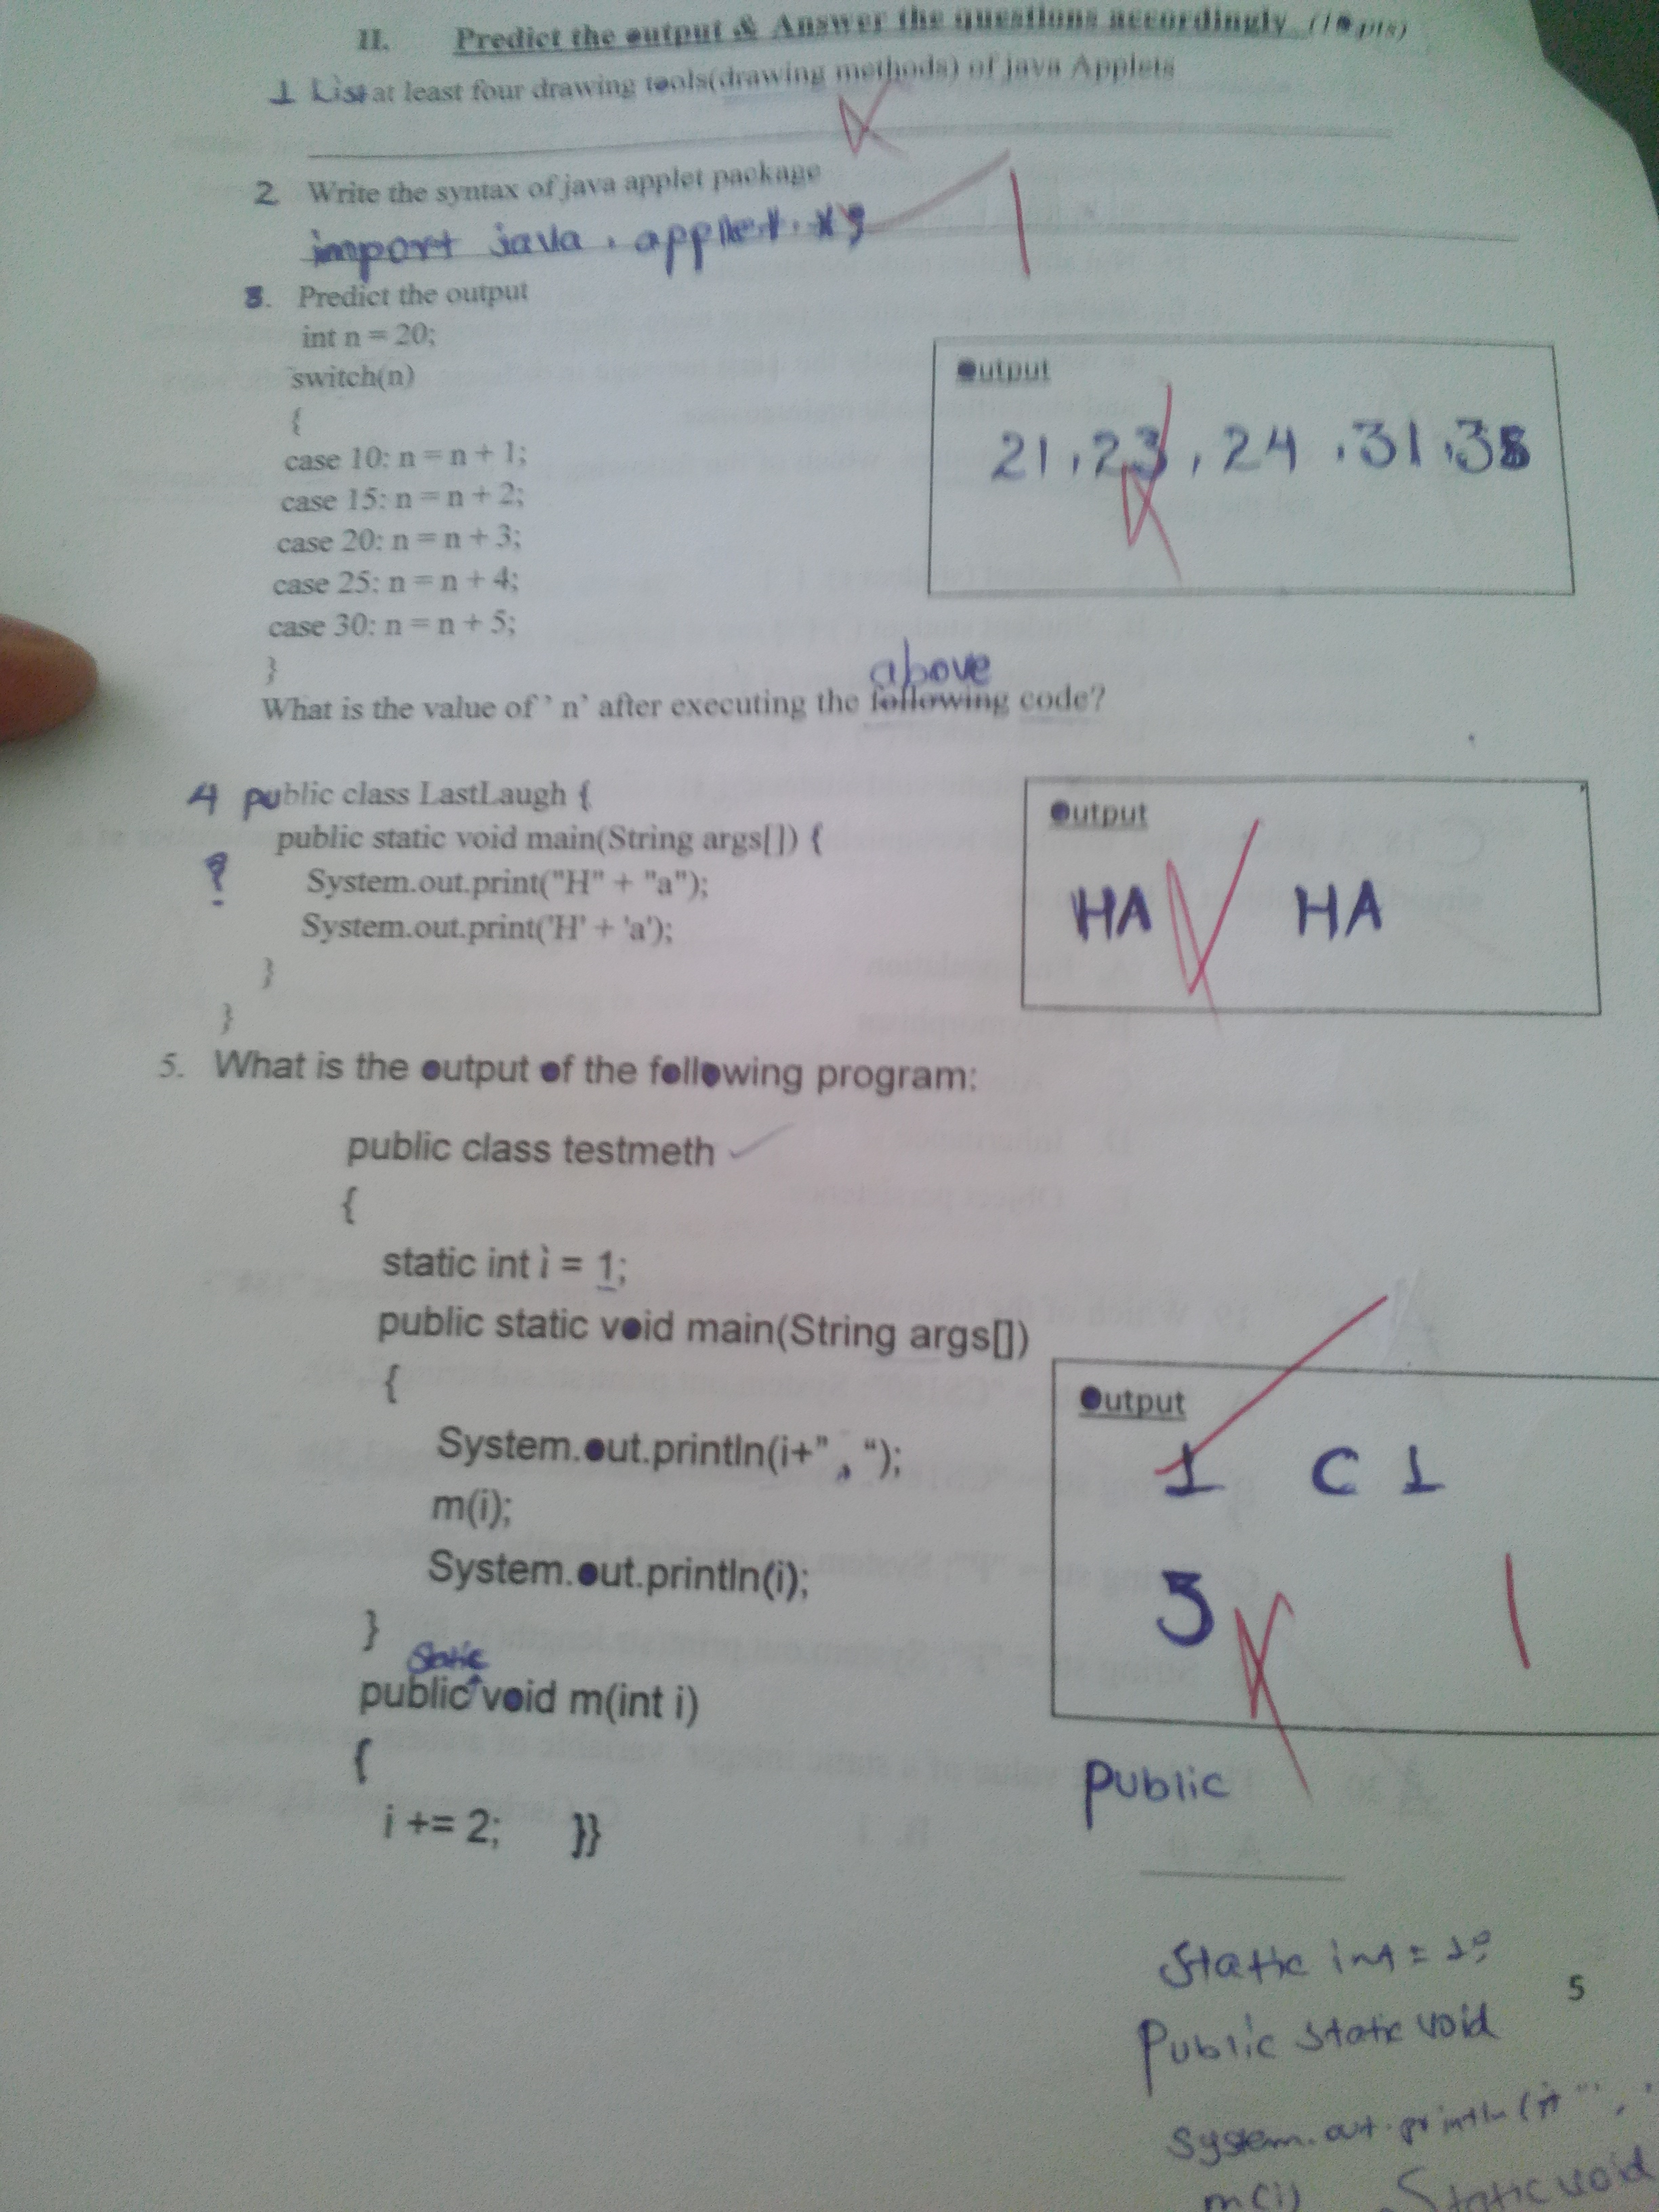 II. Predict the output & Answer the questions accordingly (10 pts)
1 List at least four drawing tools(drawing methods) of java Applets
2 Write the syntax of java applet package
import java . applet . *;
3. Predict the output
int n = 20;
switch(n)
{
case 10: n = n + 1;
case 15: n = n + 2;
case 20: n = n + 3;
case 25: n = n + 4;
case 30: n = n + 5;
}
Output
21 , 23 , 24 , 31 , 38
above
What is the value of ' n' after executing the following code?
4 public class LastLaugh {
public static void main(String args[]) {
? System.out.print("H" + "a");
System.out.print('H' + 'a');
}
}
Output
HA HA
5. What is the output of the following program:
public class testmeth
{
static int i = 1;
public static void main(String args[])
{
System.out.println(i+” , “);
m(i);
System.out.println(i);
}
static
public void m(int i)
{
i += 2; }}
Output
1 C 1
3
public
Static int = 1;
Public static void
5
System.out.println(
m(i) Static void